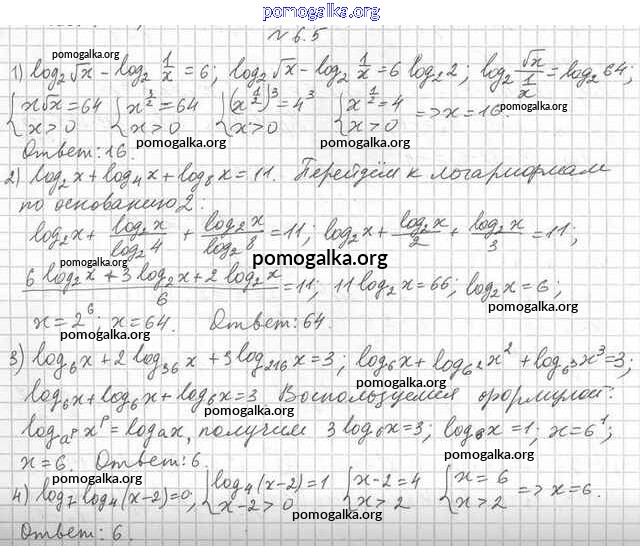 pomogalka.org
№6.5
pomogalka.org
1) log₂√x - log₂ 1/x = 6; log₂√x - log₂ 1/x = 6 log₂2; log₂ √x/(1/x) = log₂64;
{x√x = 64 {x^(3/2) = 64 {(x^(1/2))³ = 4³ {x^(1/2) = 4 => x = 16.
{x > 0 {x > 0 {x > 0 {x > 0
pomogalka.org
Ответ: 16.
pomogalka.org
pomogalka.org
2) log₂x + log₄x + log₈x = 11. Перейдём к логарифмам
по основанию 2:
pomogalka.org
log₂x + log₂x/log₂4 + log₂x/log₂8 = 11; log₂x + log₂x/2 + log₂x/3 = 11;
pomogalka.org
pomogalka.org
(6 log₂x + 3 log₂x + 2 log₂x)/6 = 11; 11 log₂x = 66; log₂x = 6;
pomogalka.org
x = 2⁶; x = 64. Ответ: 64.
pomogalka.org
3) log₆x + 2 log₃₆x + 3 log₂₁₆x = 3; log₆x + log₆²x² + log₆³x³ = 3;
pomogalka.org
log₆x + log₆x + log₆x = 3 Воспользуемся формулой:
pomogalka.org
log_(a^p) x^p = log_a x, получим 3 log₆x = 3; log₆x = 1; x = 6¹;
pomogalka.org
x = 6. Ответ: 6.
pomogalka.org
pomogalka.org
4) log₇log₄(x-2) = 0, {log₄(x-2) = 1 {x-2 = 4 {x = 6 => x = 6.
{x-2 > 0 {x > 2 {x > 2
pomogalka.org
Ответ: 6.